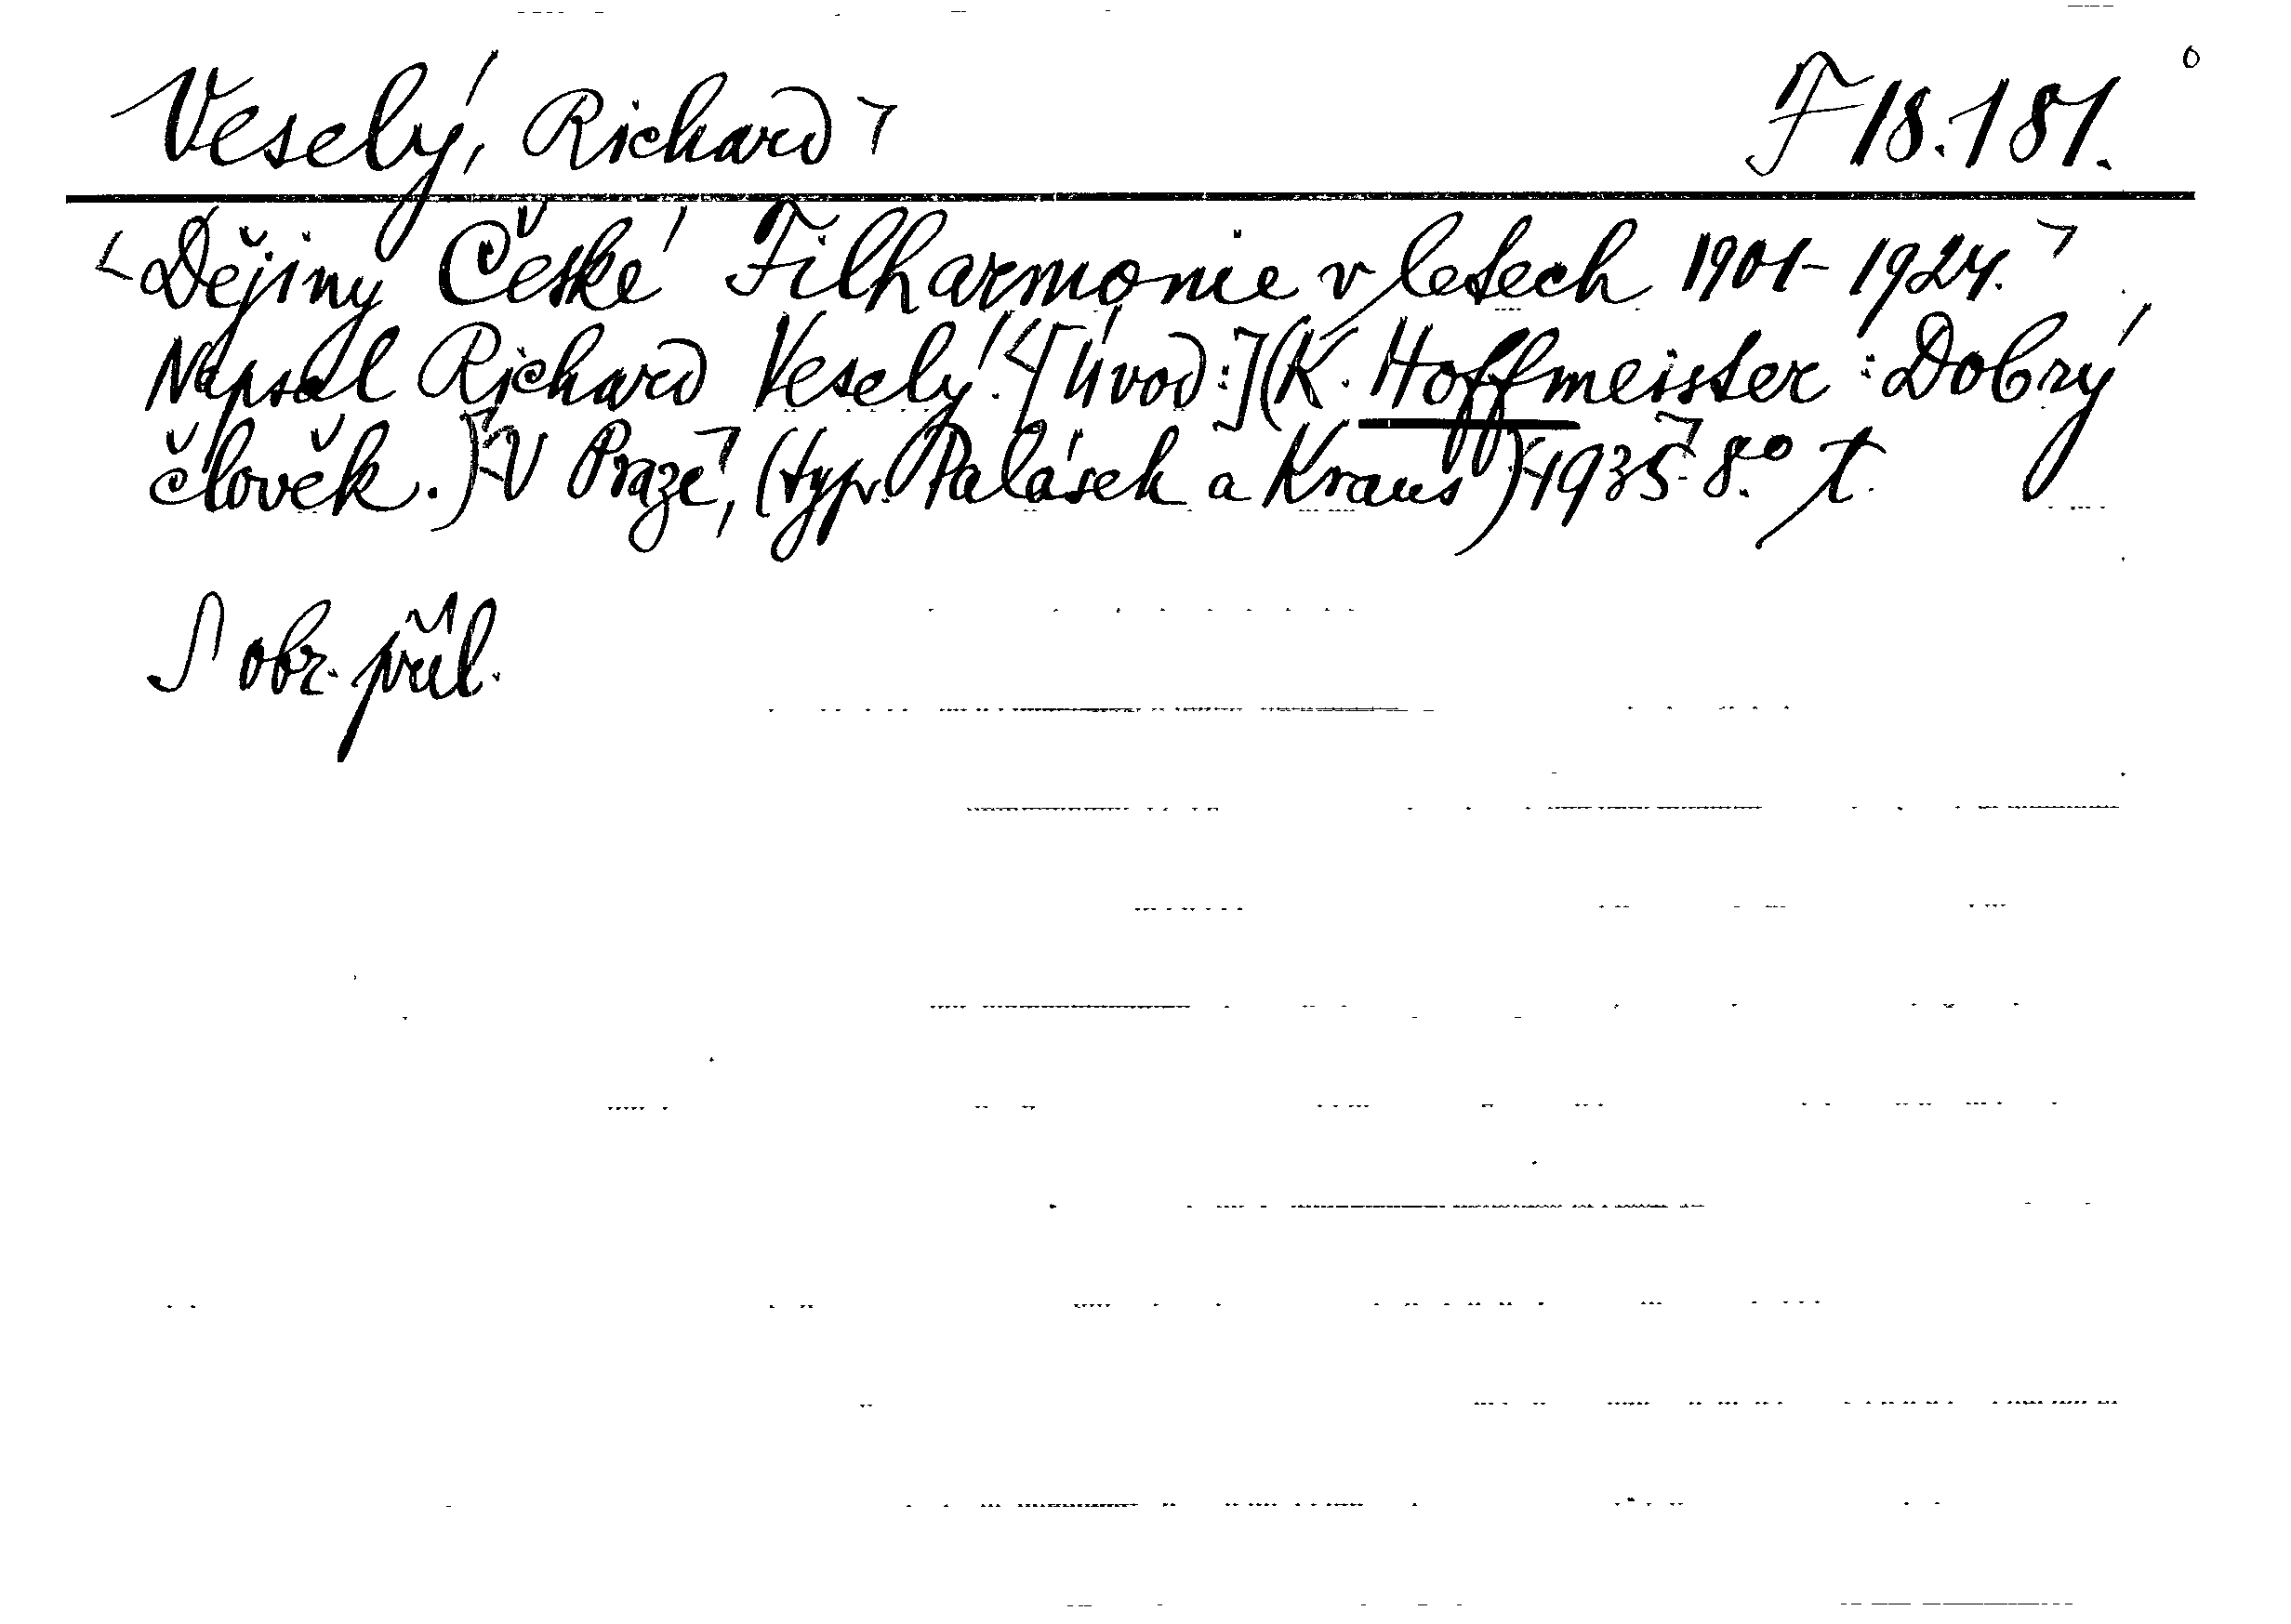 Veselý, Richard ⌝ F 18.181.
⌞Dějiny České Filharmonie v letech 1901-1924.⌝
Napsal Richard Veselý. [Úvod:] (K. Hoffmeister: Dobrý
člověk.) V Praze, (typ. Palásek a Kraus) 1935. 8° t.
S obr. příl.